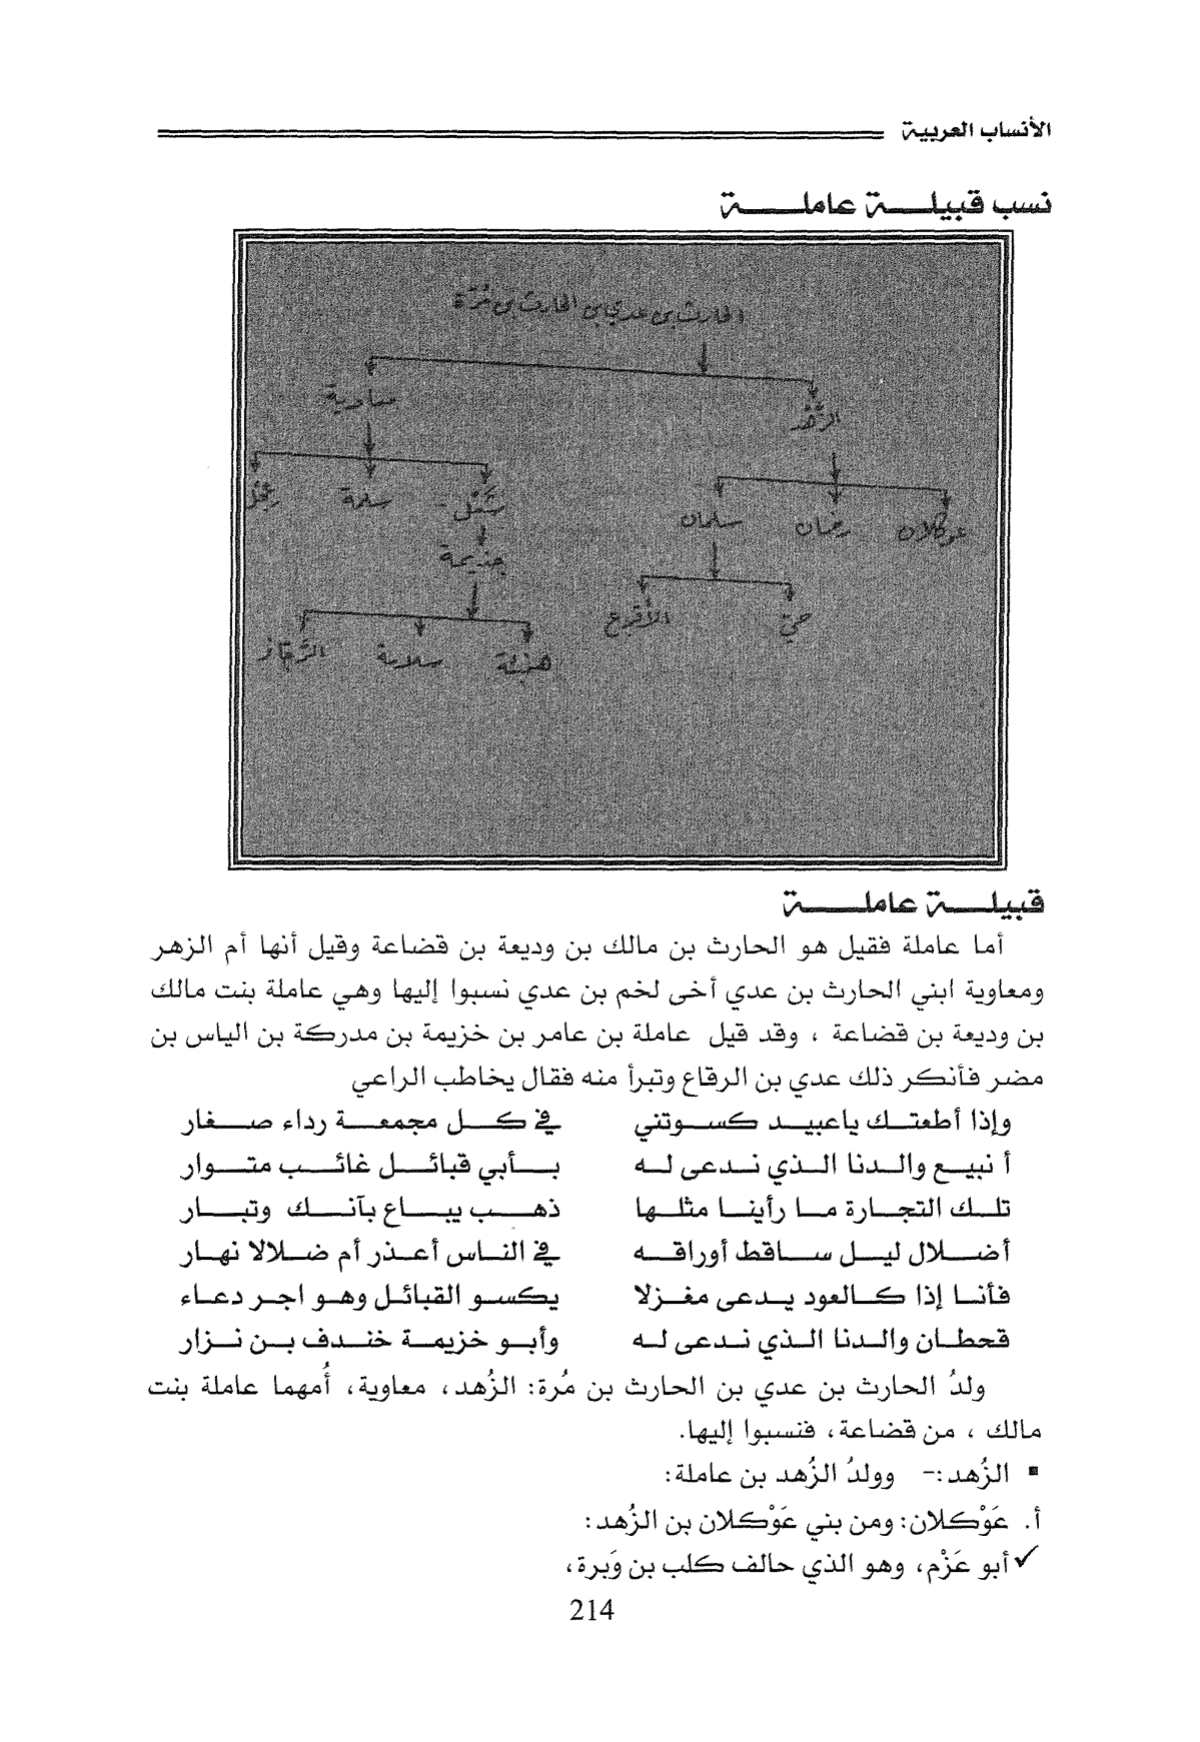 الأنساب العربية
نسب قبيلة عاملة
الحارث بن عدي بن الحارث بن مُرّة
معاوية
الزُّهْد
سلمة
عوكلان
سلمان
جذيمة
حيّ
الأقرع
سلامة
قبيلة عاملة
أما عاملة فقيل هو الحارث بن مالك بن وديعة بن قضاعة وقيل أنها أم الزهر
ومعاوية ابني الحارث بن عدي أخى لخم بن عدي نسبوا إليها وهي عاملة بنت مالك
بن وديعة بن قضاعة ، وقد قيل عاملة بن عامر بن خزيمة بن مدركة بن الياس بن
مضر فأنكر ذلك عدي بن الرقاع وتبرأ منه فقال يخاطب الراعي
وإذا أطعتك ياعبيد كسوتني في كل مجمعة رداء صغار
أ نبيع والدنا الذي ندعى له بأبي قبائل غائب متوار
تلك التجارة ما رأينا مثلها ذهب يباع بآنك وتبار
أضلال ليل ساقط أوراقه في الناس أعذر أم ضلالا نهار
فأنا إذا كالعود يدعى مغزلا يكسو القبائل وهو اجر دعاء
قحطان والدنا الذي ندعى له وأبو خزيمة خندف بن نزار
ولدُ الحارث بن عدي بن الحارث بن مُرة: الزُهد، معاوية، أُمهما عاملة بنت
مالك ، من قضاعة، فنسبوا إليها.
▪ الزُهد:- وولدُ الزُهد بن عاملة:
أ. عَوْكلان: ومن بني عَوْكلان بن الزُهد:
✓ أبو عَزْم، وهو الذي حالف كلب بن وَبرة،
214